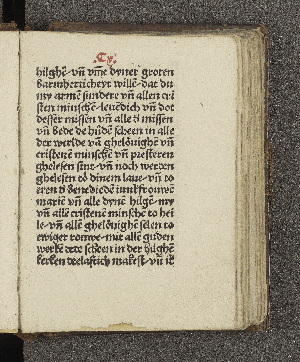 .Cx.
hilghē · vñ vm̄e dyner groten
barmherticheyt willē · dat du
my armē sunder vñ allen cri
sten minschē · leuēdich vñ dot
desser missen vñ alle d̄ missen
vñ bede de hudē scheen in alle
der werlde vā ghelouighē vñ
cristenē minschē vñ presteren
ghelesen sint · vñ noch werden
ghelesen to dinem laue · vñ to
eren d̄ benediedē iunkfrouwē
mariē vñ alle dynē hilgē · my
vñ alle cristenē minschē to hei
le · vñ allē ghelouighē selen to
ewiger rouwe · mit allē guden
werkē dede scheen in der hilghē
kerken deelaftich makest · vñ ik